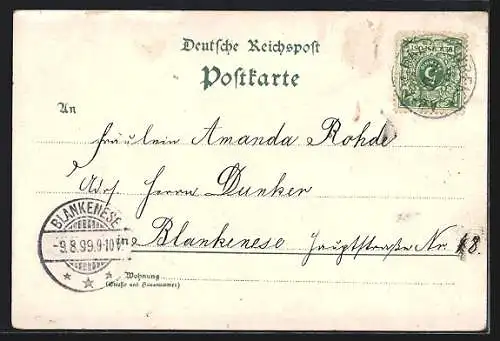 Deutsche Reichspost
Postkarte
An
Fräulein Amanda Rohde
Adr. Herrn Dunker
in Blankenese Hauptstraße Nr. 48.
BLANKENESE
-9.8.99.9-10
Wohnung
(Straße und Hausnummer)